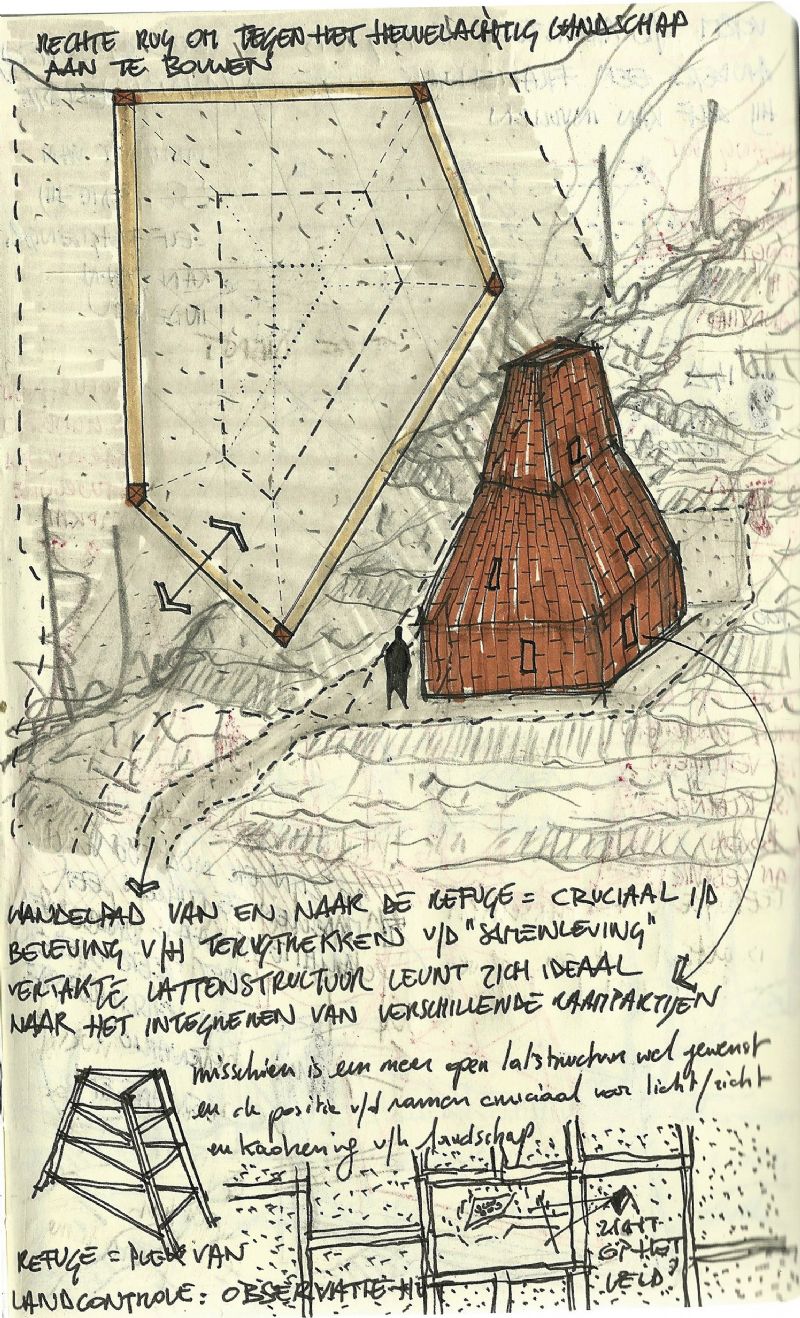 RECHTE RUG OM TEGEN HET HEUVELACHTIG LANDSCHAP
AAN TE BOUWEN
WANDELPAD VAN EN NAAR DE REFUGE = CRUCIAAL I/D
BELEVING V/H TERUGTREKKEN V/D "SAMENLEVING"
VERTAKTE LATTENSTRUCTUUR LEUNT ZICH IDEAAL
NAAR HET INTEGREREN VAN VERSCHILLENDE RAAMPARTIJEN
misschien is een meer open latstructuur wel gewenst
en de positie v/d ramen cruciaal voor licht/zicht
en kadrering v/h landschap
ZICHT
OP HET
VELD?
REFUGE = PLEK VAN
LANDCONTROLE: OBSERVATIE HET